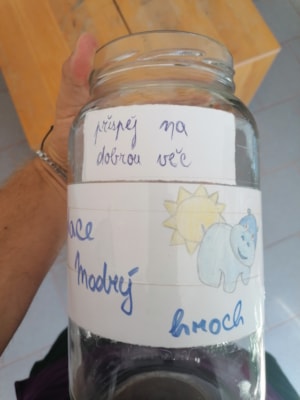 přispěj na
dobrou věc
ace
Modrý
hroch